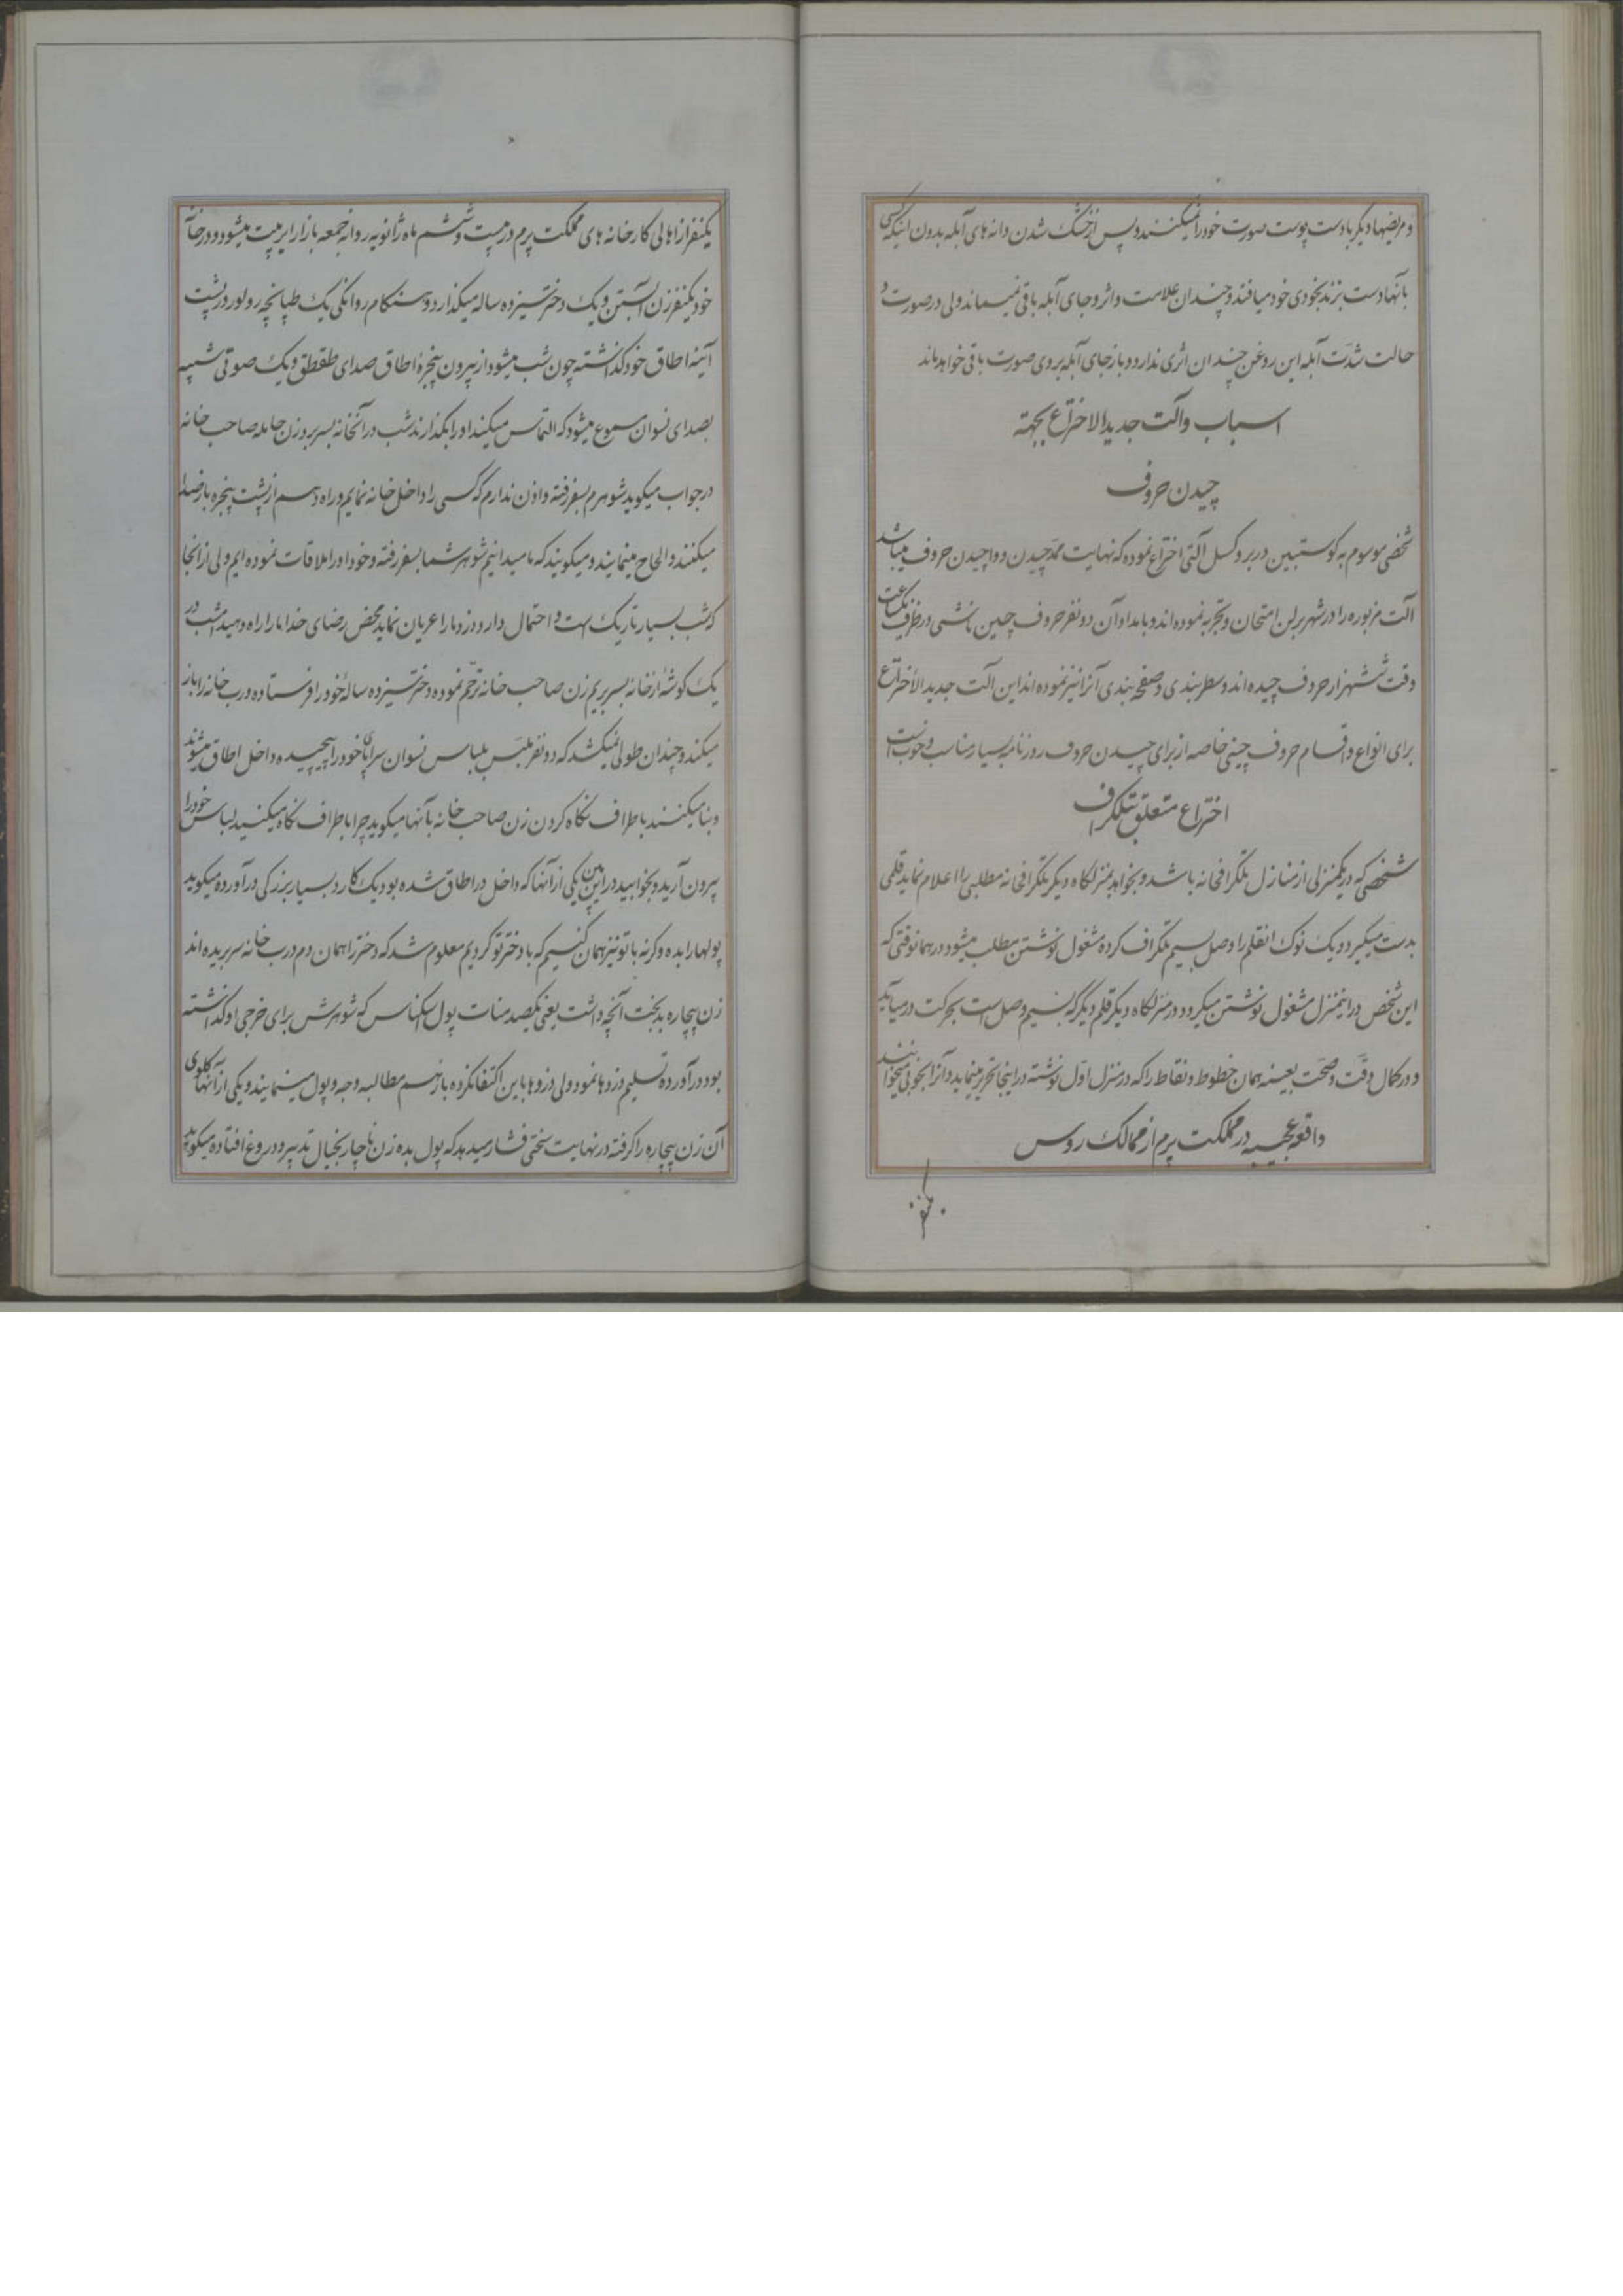 و مریضها دیگر با دست پوست صورت خود را نمیکنند و پس از خشک شدن دانه های آبله بدون اینکه کسی
بآنها دست بزند بخودی خود میافتد و چندان علامت و اثر و جای آبله باقی نمیماند ولی در صورت و
حالت شدّت آبله این روغن چندان اثری ندارد و باز جای آبله بروی صورت باقی خواهد ماند
اسباب و آلت جدید الاختراع بجهة
چیدن حروف
شخصی موسوم به کوستبین در بروکسل آلتی اختراع نموده که نهایت ممدّ چیدن و واچیدن حروف میباشد
آلت مزبوره را در شهر برلن امتحان و تجربه نموده اند و بامداد آن دو نفر حروف چین ناشی در ظرف یکساعت
وقت ششهزار حروف چیده اند و سطر بندی و صفحه بندی آنرا نیز نموده اند این آلت جدید الاختراع
برای انواع و اقسام حروف چینی خاصه از برای چیدن حروف روزنامه بسیار مناسب و خوب است
اختراع متعلق بتلگراف
شخصی که در یکمنزلی از منازل تلگرافخانه باشد و بخواهد بمنزلگاه دیگر تلگرافخانه مطلبی را اعلام نماید قلمی
بدست میگیرد و یک نوک انقلم را وصل بسیم تلگراف کرده مشغول نوشتن مطلب میشود در همانوقتی که
این شخص در اینمنزل مشغول نوشتن میگردد در منزلگاه دیگر قلم دیگر که بسیم وصل است بحرکت در میآید
و در کمال دقّت و صحّت بعینه همان خطوط و نقاط را که در منزل اوّل نوشته در اینجا تحریر مینماید و آنرا بخوبی میخوانند
واقعه عجیبه در مملکت پرم از ممالک روس
یکنفر
یکنفر از اهالی کارخانه های مملکت پرم در بیست و ششم ماه ژانویه روانه جمعه بازار ایربیت میشود و در خانه
خود یکنفر زن آبستن و یک دختر سیزده ساله میگذارد و هنگام روانگی یک طپانچه رولور در پشت
آینه اطاق خود گذاشته چون شب میشود از بیرون پنجرۀ اطاق صدای طقطق و یک صوتی شبیه
بصدای نسوان مسموع میشود که التماس میکنند او را بگذارند شب در آنخانه بسر برد زن حامله صاحب خانه
در جواب میگوید شوهرم بسفر رفته و اذن ندارم که کسی را داخل خانه نمایم و راه دهم از پشت پنجره باز صدا
میکنند و الحاح مینمایند و میگویند که ما میدانیم شوهر شما بسفر رفته و خود او را ملاقات نموده ایم ولی از آنجا
که شب بسیار تاریک است و احتمال دارد دزد ما را عریان نماید محض رضای خدا ما را راه دهید امشب در
یک گوشۀ از خانه بسر بریم زن صاحب خانه ترحّم نموده دختر سیزده سالۀ خود را فرستاده درب خانه را باز
میکند و چندان طولی نمیکشد که دو نفر ملبّس بلباس نسوان سراپای خود را پیچیده داخل اطاق میشوند
و بنا میکنند باطراف نگاه کردن زن صاحب خانه بآنها میگوید چرا باطراف نگاه میکنید لباس خود را
بیرون آرید و بخوابید در این بین یکی از آنها که داخل در اطاق شده بود یک کارد بسیار بزرگی در آورده میگوید
پولها را بده و گرنه با تو نیز همان کنیم که با دختر تو کردیم معلوم شد که دختر را همان دم درب خانه سر بریده اند
زن بیچاره بدبخت آنچه داشت یعنی یکصد منات پول اسکناس که شوهرش برای خرجی او گذاشته
بود در آورده تسلیم دزدها نمود ولی دزدها باین اکتفا نکرده باز هم مطالبه وجه و پول مینمایند و یکی از آنها گلوی
آن زن بیچاره را گرفته در نهایت سختی فشار میدهد که پول بده زن ناچار بخیال تدبیر و دروغ افتاده میگوید